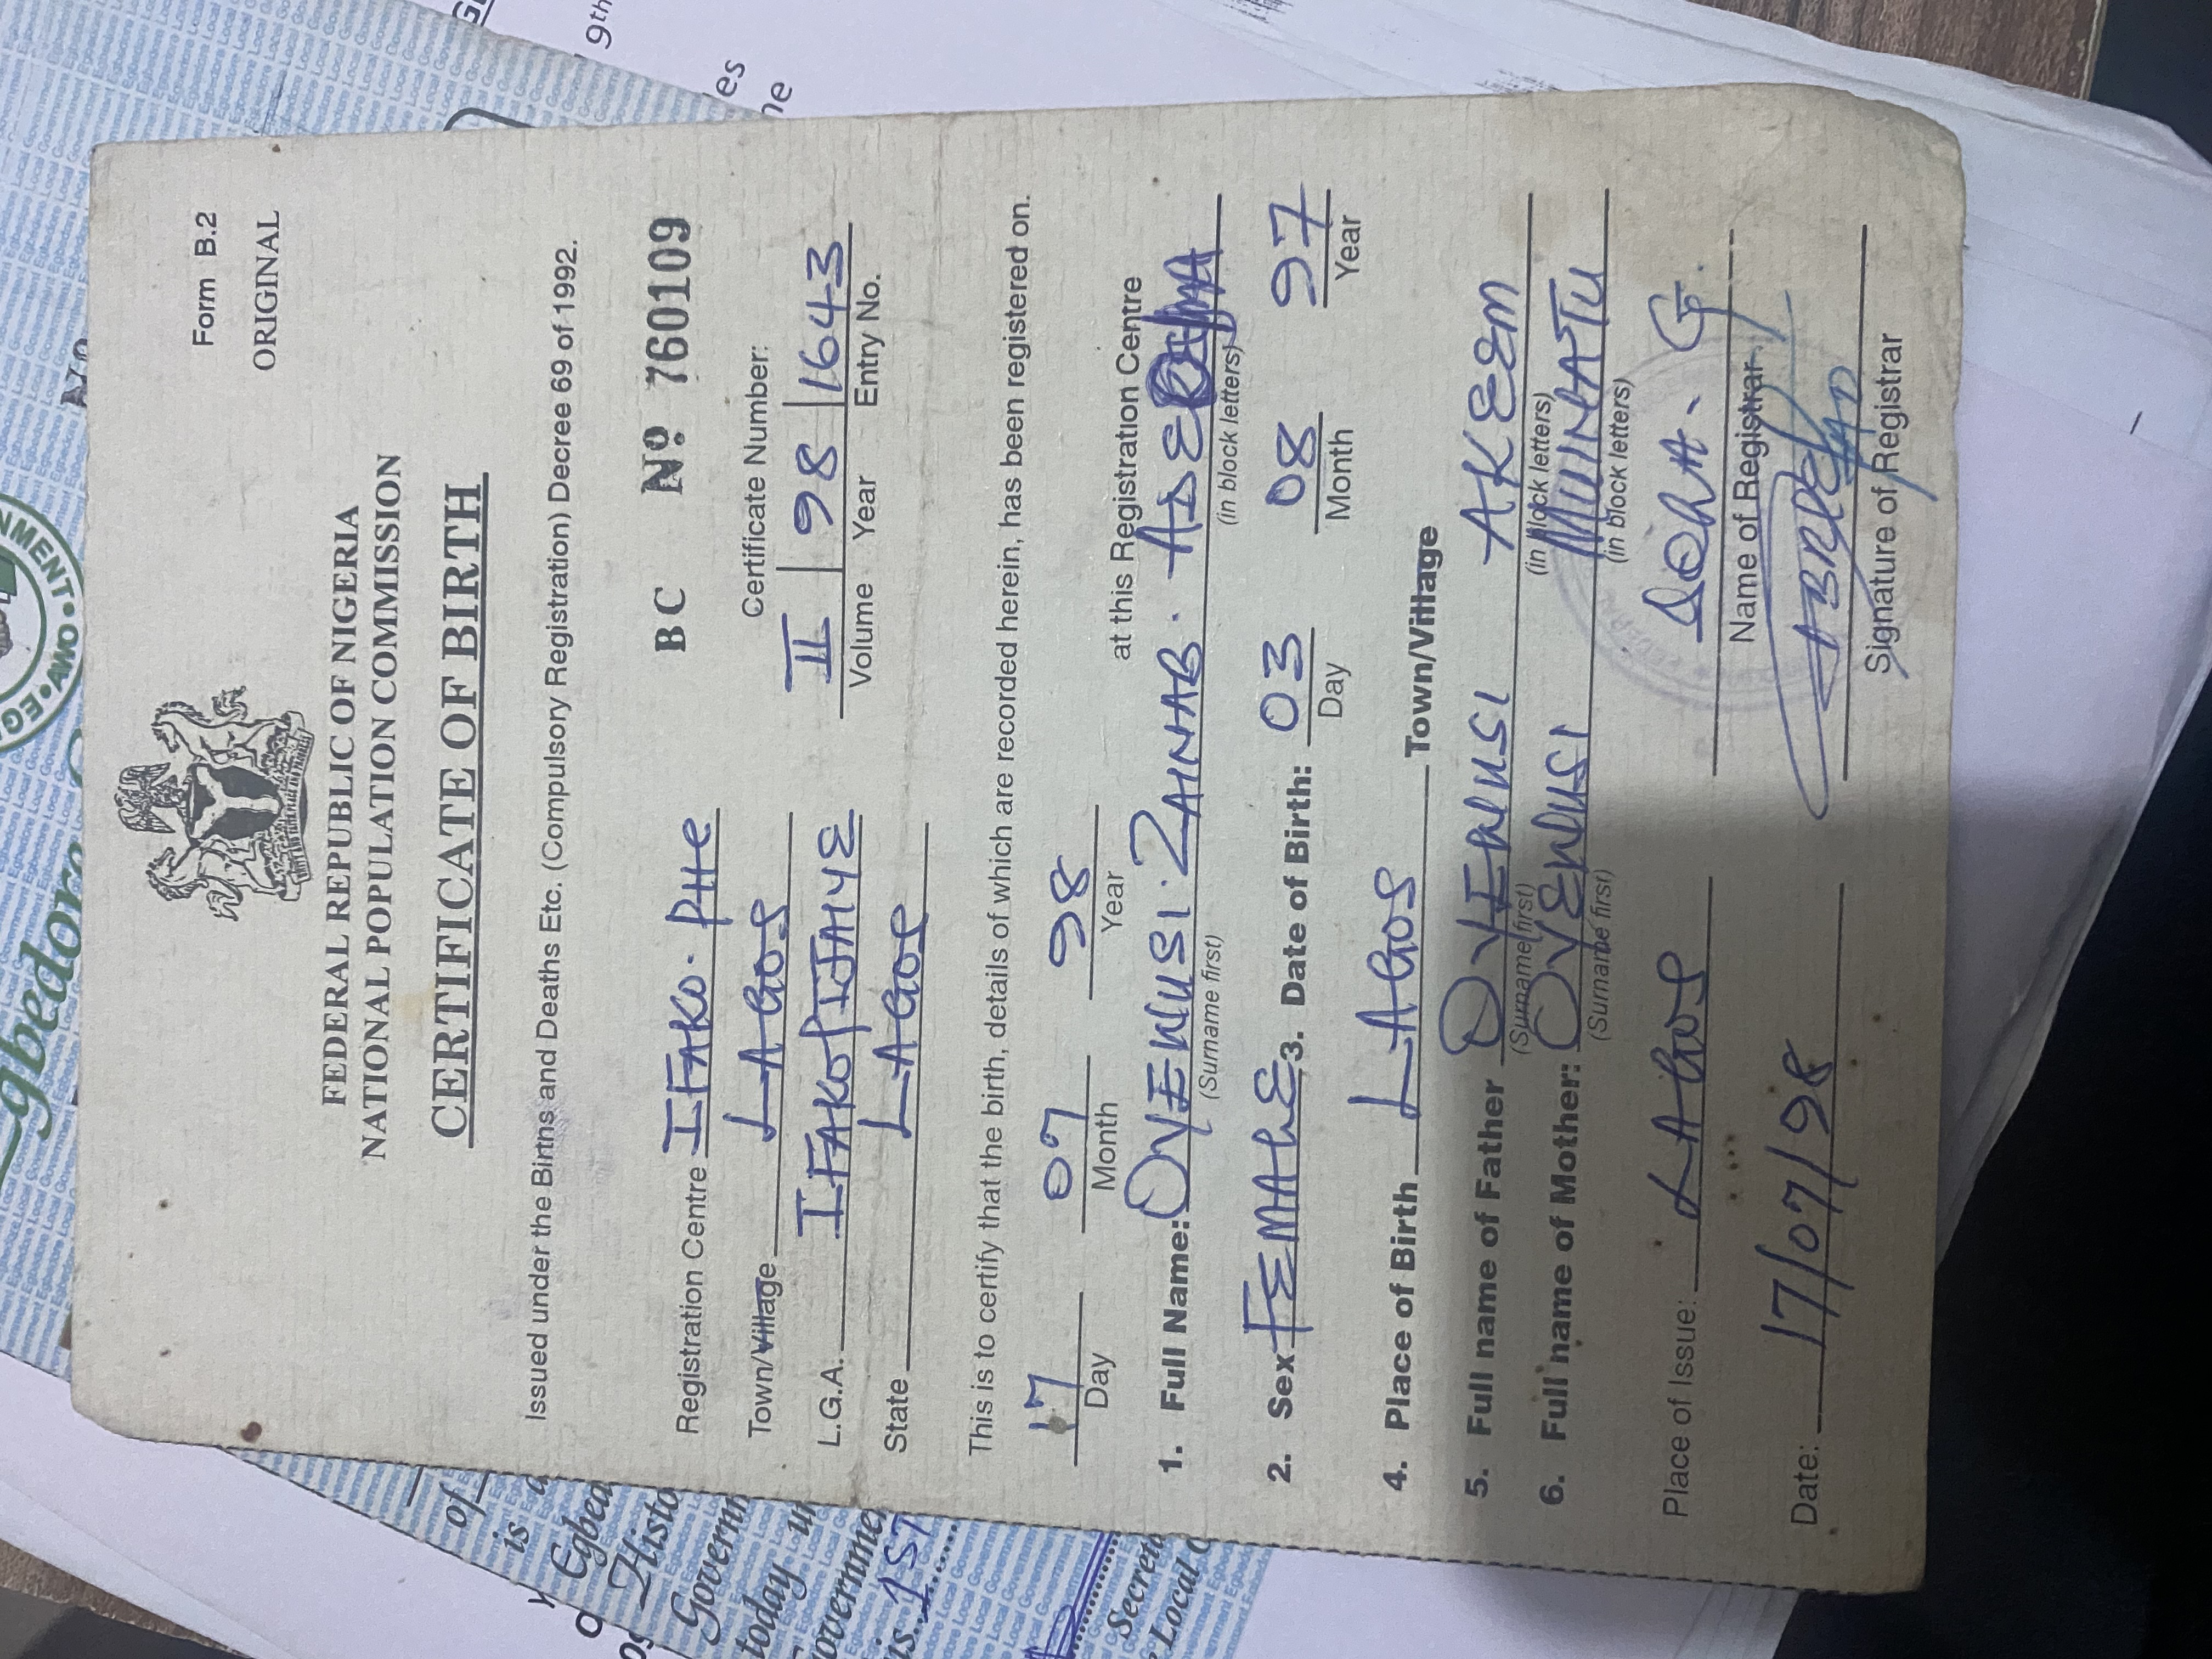 Form B.2
ORIGINAL
FEDERAL REPUBLIC OF NIGERIA
NATIONAL POPULATION COMMISSION
CERTIFICATE OF BIRTH
Issued under the Births and Deaths Etc. (Compulsory Registration) Decree 69 of 1992.
BC Nº 760109
Registration Centre IFAKO. PHC
Certificate Number:
Town/Village LAGOS
II 98 1643
Volume Year Entry No.
L.G.A. IFAKO/IJAIYE
State LAGOS
This is to certify that the birth, details of which are recorded herein, has been registered on.
17 07 98
Day Month Year
at this Registration Centre
1. Full Name: OYEWUSI. ZAINAB.
(Surname first) (in block letters)
2. Sex FEMALE 3. Date of Birth: 03 08 97
Day Month Year
4. Place of Birth LAGOS Town/Village
5. Full name of Father OYEWUSI AKEEM
(Surname first) (in block letters)
6. Full name of Mother: OYEWUSI MUINATU
(Surname first) (in block letters)
Place of Issue: LAGOS
Name of Registrar
Date: 17/07/98
Signature of Registrar
gbedore
NMENT • OMA •
9th
es
ne
of
is
Egbed
Histo
Governm
today
overnme
is... 1ST
Secreta
Local G